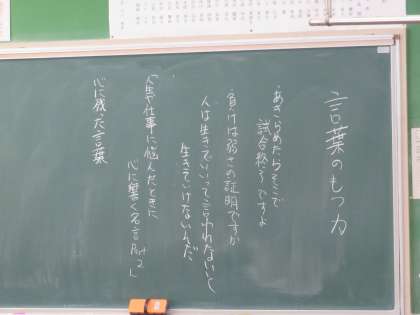 言葉のもつ力
・あきらめたらそこで
試合終了ですよ
・負けは弱さの証明ですか
・人は生きていいって言われないと
生きていけないんだ
「人生や仕事に悩んだときに
心に響く名言 Part2」
心に残った言葉